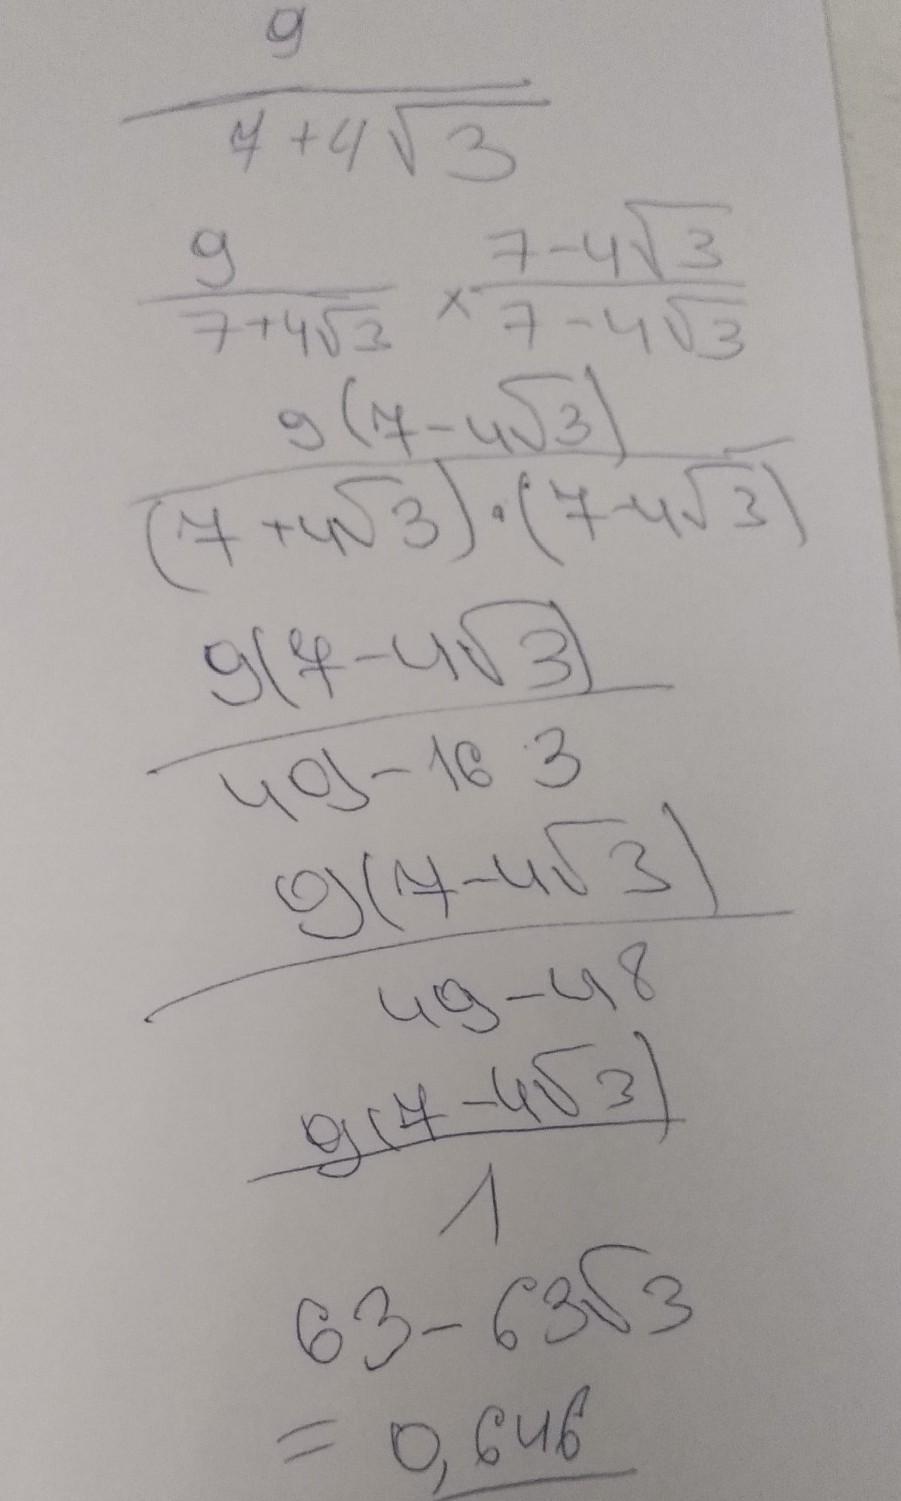 9
7+4√3
9 7-4√3
7+4√3 × 7-4√3
9(7-4√3)
(7+4√3)·(7-4√3)
9(7-4√3)
49-16 3
9(7-4√3)
49-48
9(7-4√3)
1
63-63√3
= 0,646